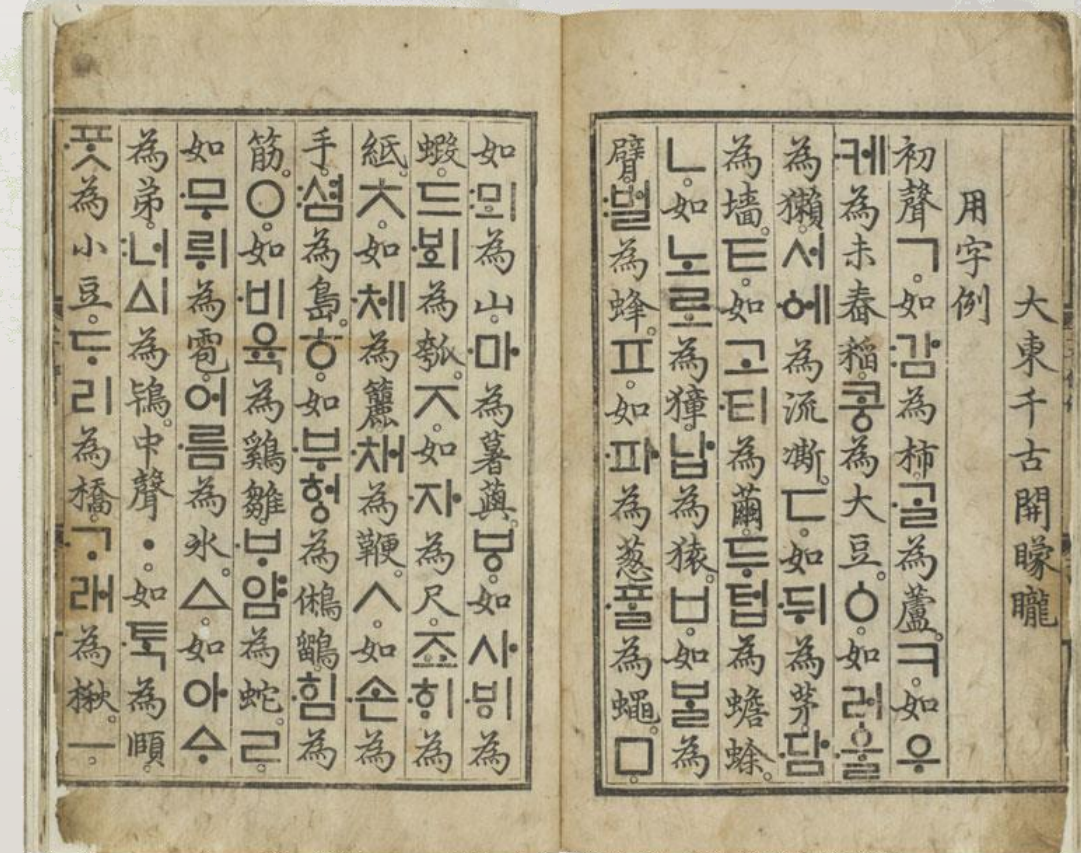 大東千古開矇矓
用字例
初聲ㄱ。如:감為柿。·ᄀᆞᆯ為蘆。ㅋ。如우
·케為未舂稻。콩為大豆。ㆁ。如러·ᅌᅮᆯ
為獺。서·ᅌᅦ為流凘。ㄷ。如·뒤為茅。·담
為墻。ㅌ。如고·티為繭。두텁為蟾蜍。
ㄴ。如노로為獐。납為猿。ㅂ。如ᄇᆞᆯ為
臂。:벌為蜂。ㅍ。如·파為葱。·ᄑᆞᆯ為蠅。ㅁ。
如:뫼為山。·마為薯藇。ㅸ。如사·ᄫᅵ為
蝦。드·ᄫᅴ為瓠。ㅈ。如·자為尺。죠·ᄒᆡ為
紙。ㅊ。如·체為籭。·채為鞭。ㅅ。如·손為
手。:셤為島。ㅎ。如·부허ᇰ為鵂鶹。·힘為
筋。ㅇ。如·비육為鷄雛。·ᄇᆞ얌為蛇。ㄹ。
如·무뤼為雹。어·름為氷。ㅿ。如아ᅀᆞ
為弟。:너ᅀᅵ為鴇。中聲ㆍ。如·ᄐᆞᆨ為頤。
·ᄑᆞᆺ為小豆。ᄃᆞ리為橋。·ᄀᆞ래為楸。ㅡ。